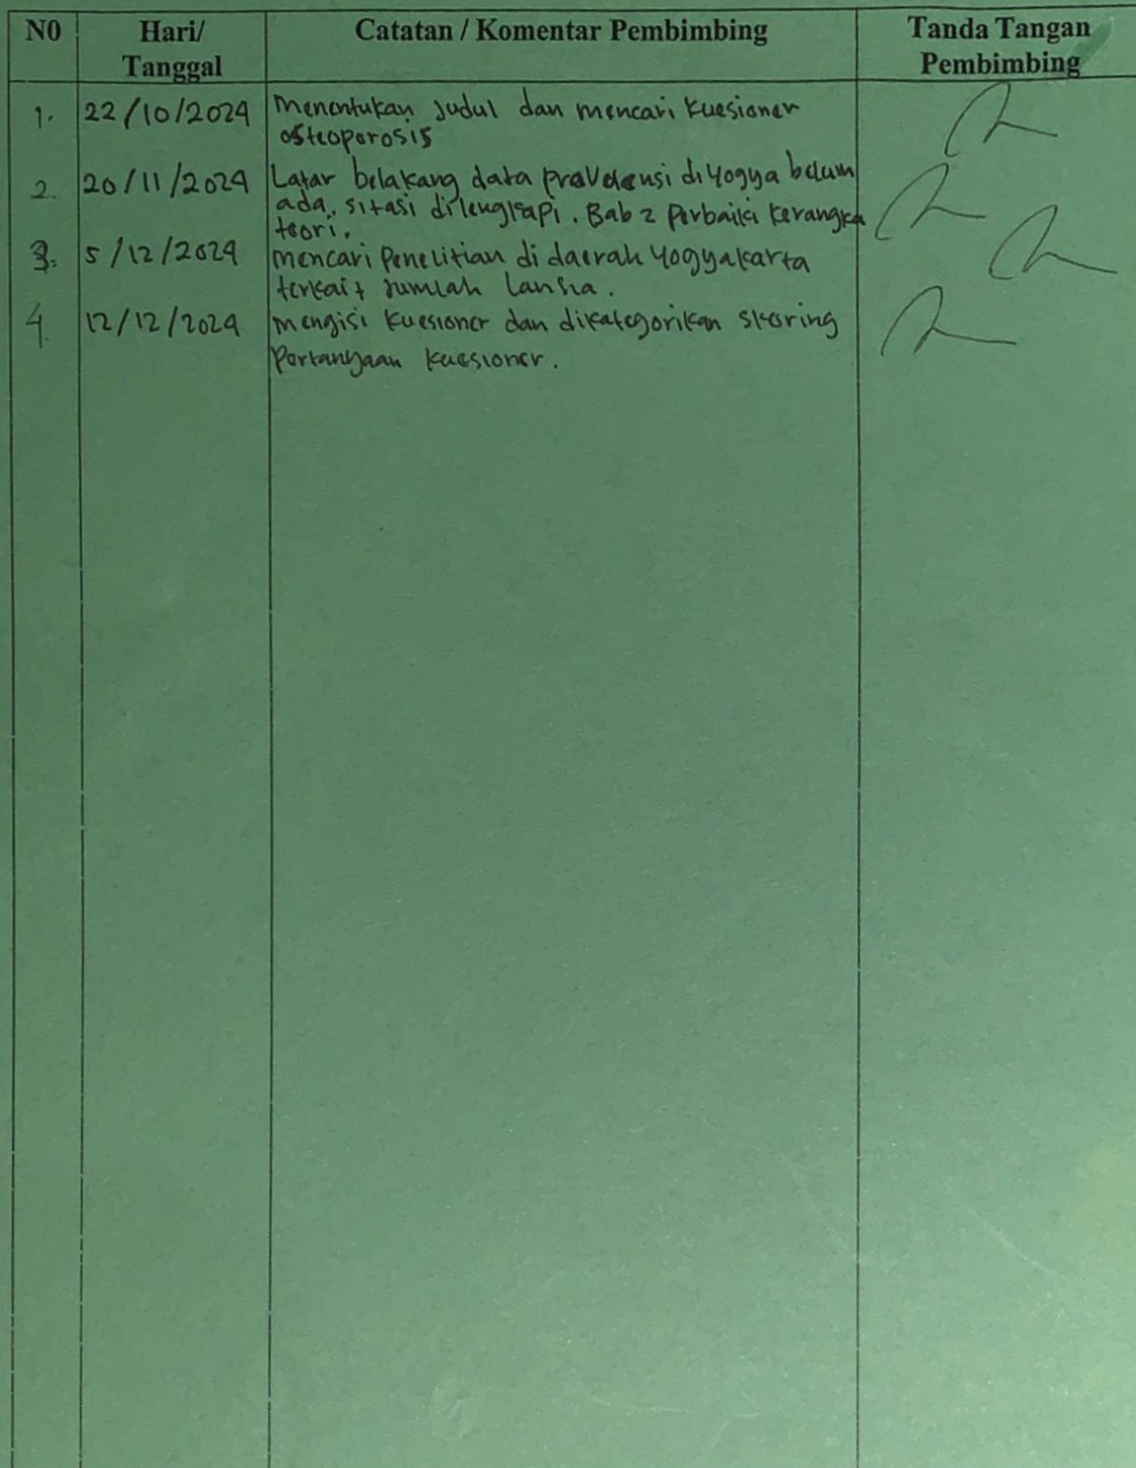 N0 Hari/ Tanggal Catatan / Komentar Pembimbing Tanda Tangan Pembimbing
1. 22/10/2024 Menentukan judul dan mencari kuesioner
osteoporosis
2. 20/11/2024 Latar belakang data pravelensi di Yogya belum
ada, sitasi dilengkapi. Bab 2 Perbaiki kerangka
teori.
3. 5/12/2024 mencari Penelitian di daerah Yogyakarta
terkait Jumlah Lansia.
4. 12/12/2024 mengisi kuesioner dan dikategorikan skoring
Pertanyaan kuesioner.